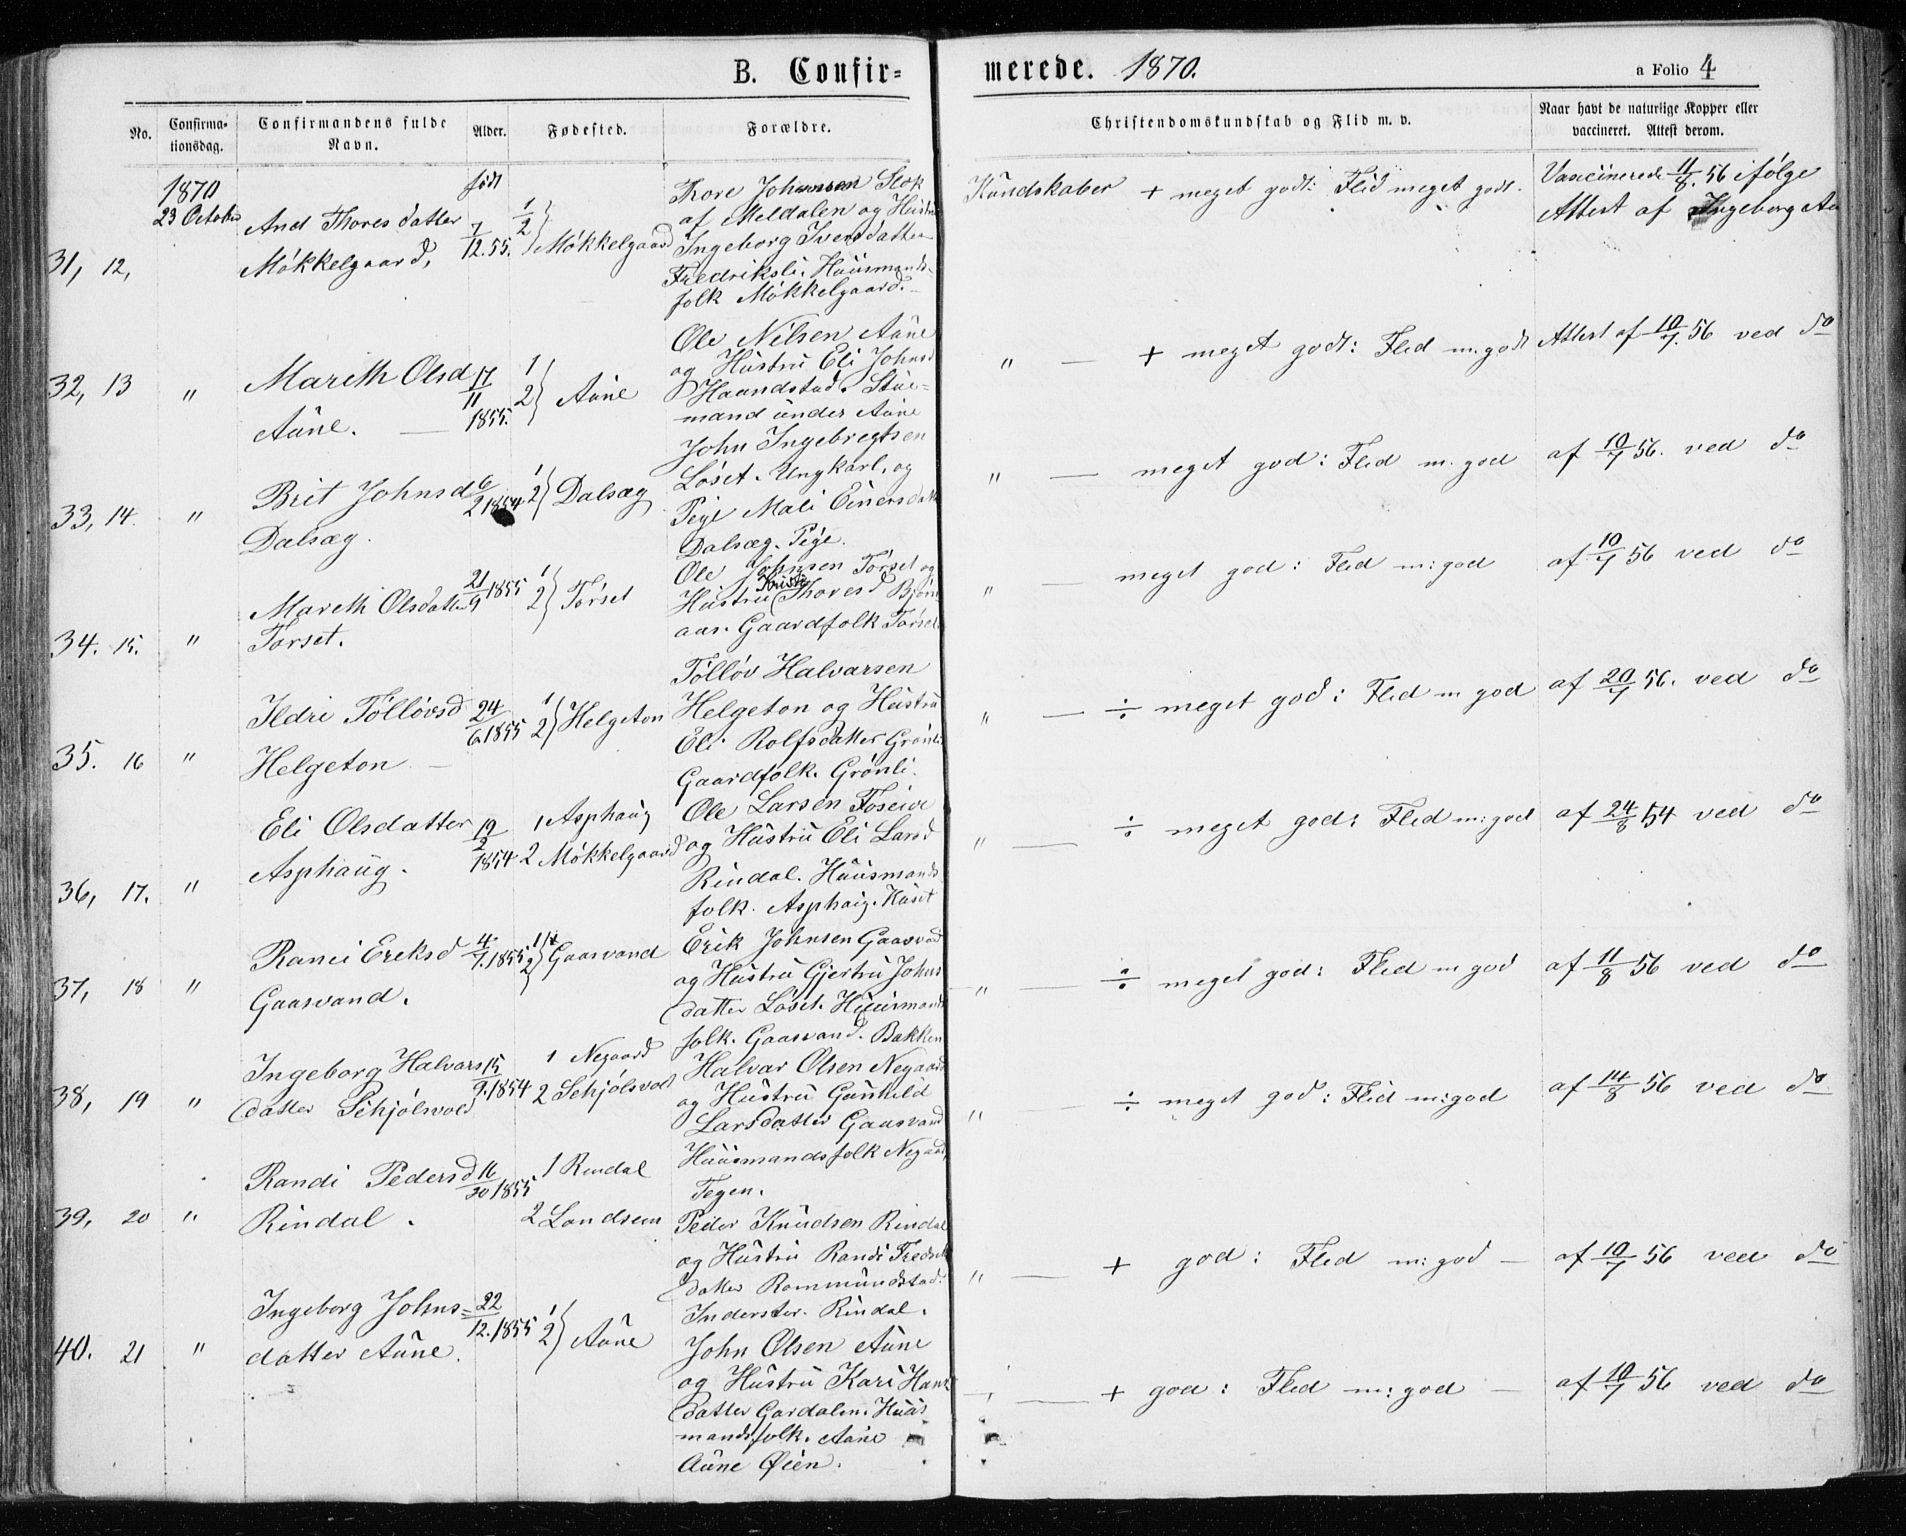 B. Confir=
merede. 1870.
a Folio 4
No.
Confirma-
tionsdag.
Confirmandens fulde
Navn.
Alder.
Fødested.
Forældre.
Christendomskundskab og Flid m. v.
Naar havt de naturlige Kopper eller
vaccineret. Attest derom.
1870
23 October
31, 12,
And Thoresdatter
Mökkelgaard,
født
7/12.55.
1/2} Mökkelgaard
Tore Johansen Stok
af Meldalen og Hustru
Ingeborg Iversdatter
Fredriksli. Huusmands-
folk Mökkelgaard.
Kundskaber + meget godt: Flid meget godt.
Vaccinerede 11/8. 56 ifølge
Attest af Ingeborg Aa
32, 13 "
Mareth Olsd
Aune.
17/11 1855.
1 2} Aune
Ole Nilsen Aune
og Hustru Eli Johnsd
Haandstad. Stue-
mand under Aune
" — + meget godt: Flid m. godt
Attest af 10/7. 56 ved do
33, 14. "
Brit Johnsd
Dalsæg.
6/2 1854
1 2} Dalsæg
John Ingebregtsen
Löset. Ungkarl, og
Pige Mali Einersdatt
Dalsæg. Pige.
" — meget god: Flid m. god
af 10/7 56. ved do
34. 15. "
Mareth Olsdatter
Törset.
21/9 1855
1 2} Törset
Ole Johnsen Törset og
Hustru Kristi Thoresd Bjørn
aas. Gaardfolk Törset
" — meget god: Flid m: god
af 10/7 56 ved do
35. 16 "
Ildri Töllövsd
Helgeton
24/6 1855
1 2} Helgeton
Töllöv Halvarsen
Helgeton og Hustru
Eli Rolfsdatter Grönli
Gaardfolk. Grönli.
" — ÷ meget god: Flid m god
af 20/7 56. ved do
36, 17. "
Eli Olsdatter
Asphaug.
19/2 1854
1 Asphaug
2 Mökkelgaard
Ole Larsen Foseide
og Hustru Eli Larsd
Rindal. Huusmands
folk. Asphaug. Huset
" — ÷ meget god: Flid m: god
af 24/8 54 ved do
37, 18 "
Ranei Ereksd
Gaasvand.
4/7. 1855
1 2} Gaasvand
Erik Johnsen Gaasvand
og Hustru Gjertru Johns
datter Löset. Huusmands
folk. Gaasvand. Bakken
" — ÷ meget god: Flid m god
af 11/8 56 ved do
38, 19 "
Ingeborg Halvars
datter Schjölsvold
15/9. 1854
1 Negaard
2 Schjölsvold
Halvar Olsen Negaard
og Hustru Gunhild
Larsdatter Gaasvand
Huusmandsfolk Negaard,
Tegen.
" — ÷ meget god: Flid m: god
af 14/8 56 ved do
39, 20 "
Randi Pedersd
Rindal.
16/20 1855
1 Rindal
2 Landsem
Peder Knudsen Rindal
og Hustru Randi Fredrik
datter Rommundstad.
Inderster. Rindal.
" — + god: Flid m: god —
af 10/7 56 ved do
40. 21 "
Ingeborg Johns=
datter Aune.
22/12. 1855
1 2} Aune
John Olsen Aune
og Hustru Kari Hans
datter Gardalen. Huus
mandsfolk. Aune
Aune Øien.
— + god: Flid m: god —
af 10/7 56 ved do